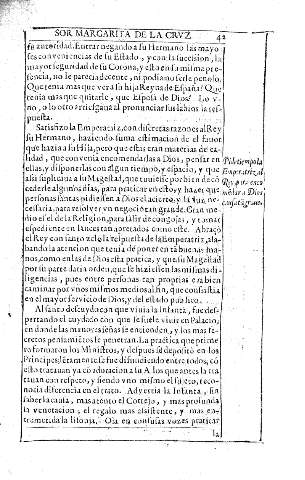 SOR MARGARITA DE LA CRVZ 42
su autoridad. Entrar negando a su Hermano las mayo-
res conveniencias de su Estado, y con la succession, la
mayor seguridad de su Corona, y esta en su misma pre-
sencia, no le parecia decente, ni podia no serle penoso.
Que tenia mas que ver a su hija Reyna de España? Que
tenia mas que quitarle, que Esposa de Dios? Lo v-
no, o lo otro arriesgava al pronunciar sus labios la res-
puesta.
Satisfizo la Emperatriz, con discretas razones al Rey
su Hermano, haziendo suma estimacion de el favor
que hazia a su Hija, pero que estas eran materias de ca-
lidad, que convenia encomendarlas a Dios, pensar en
ellas, y disponerlas con algun tiempo, y espacio, y que
assi suplicava a su Magestad, que tuviesse por bien de có
cederle algunos dias, para praticar en esto, y hazer que
personas santas pidiessen a Dios el acierto, y la luz ne-
cessaria, para resolver negocio tan grande. Gran me-
dio es el de la Religion, para salir de congojas, y tomar
expediente en lances tan apretados como este. Abraçó
el Rey con sumo zelo la respuesta de la Emperatriz, ala-
bando la atencion que tenia de poner en tan buenas ma-
nos, como en las de Dios esta pratica, y que su Magestad
por su parte daria orden, que se hiziessen las mismas di-
ligencias, pues entre personas tan proprias era bien
caminar por vnos mismos medios al fin, que consistia
en el mayor servicio de Dios, y del estado publico.
Al santo descuydo con que vivia la Infanta, fue des-
pertando el cuydado con que se suele vivir en Palacio,
en donde las mas señas se entienden, y los mas se-
cretos pensamientos se penetran. La practica que prime-
ro formaron los Ministros, y despues se depositó en los
Principes, se fue difundiendo entre todos, có
esto tratauan ya có adoracion a su A los que antes la tra
tauan con respeto, y siendo vno mismo el sujeto, reco-
nocia diferencia en el trato. Advertia la Infanta, sin
saber la causa, mas atento el Cortejo, y mas profunda
la veneracion; el regalo mas assistente, y mas en-
trometida la lisonja. Oia en confusas vozes praticar
la
Pide tiempo la
Emperatriz al
Rey para enco
mendarlo a Dios,